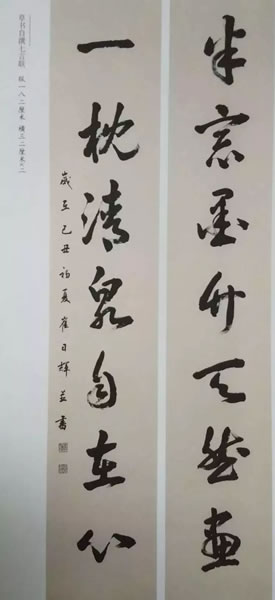 半窗墨竹天然畫
一枕清泉自在心
歲在己丑初夏崔日輝并書
草书自撰七言联 纵一八二厘米 横三二厘米×二